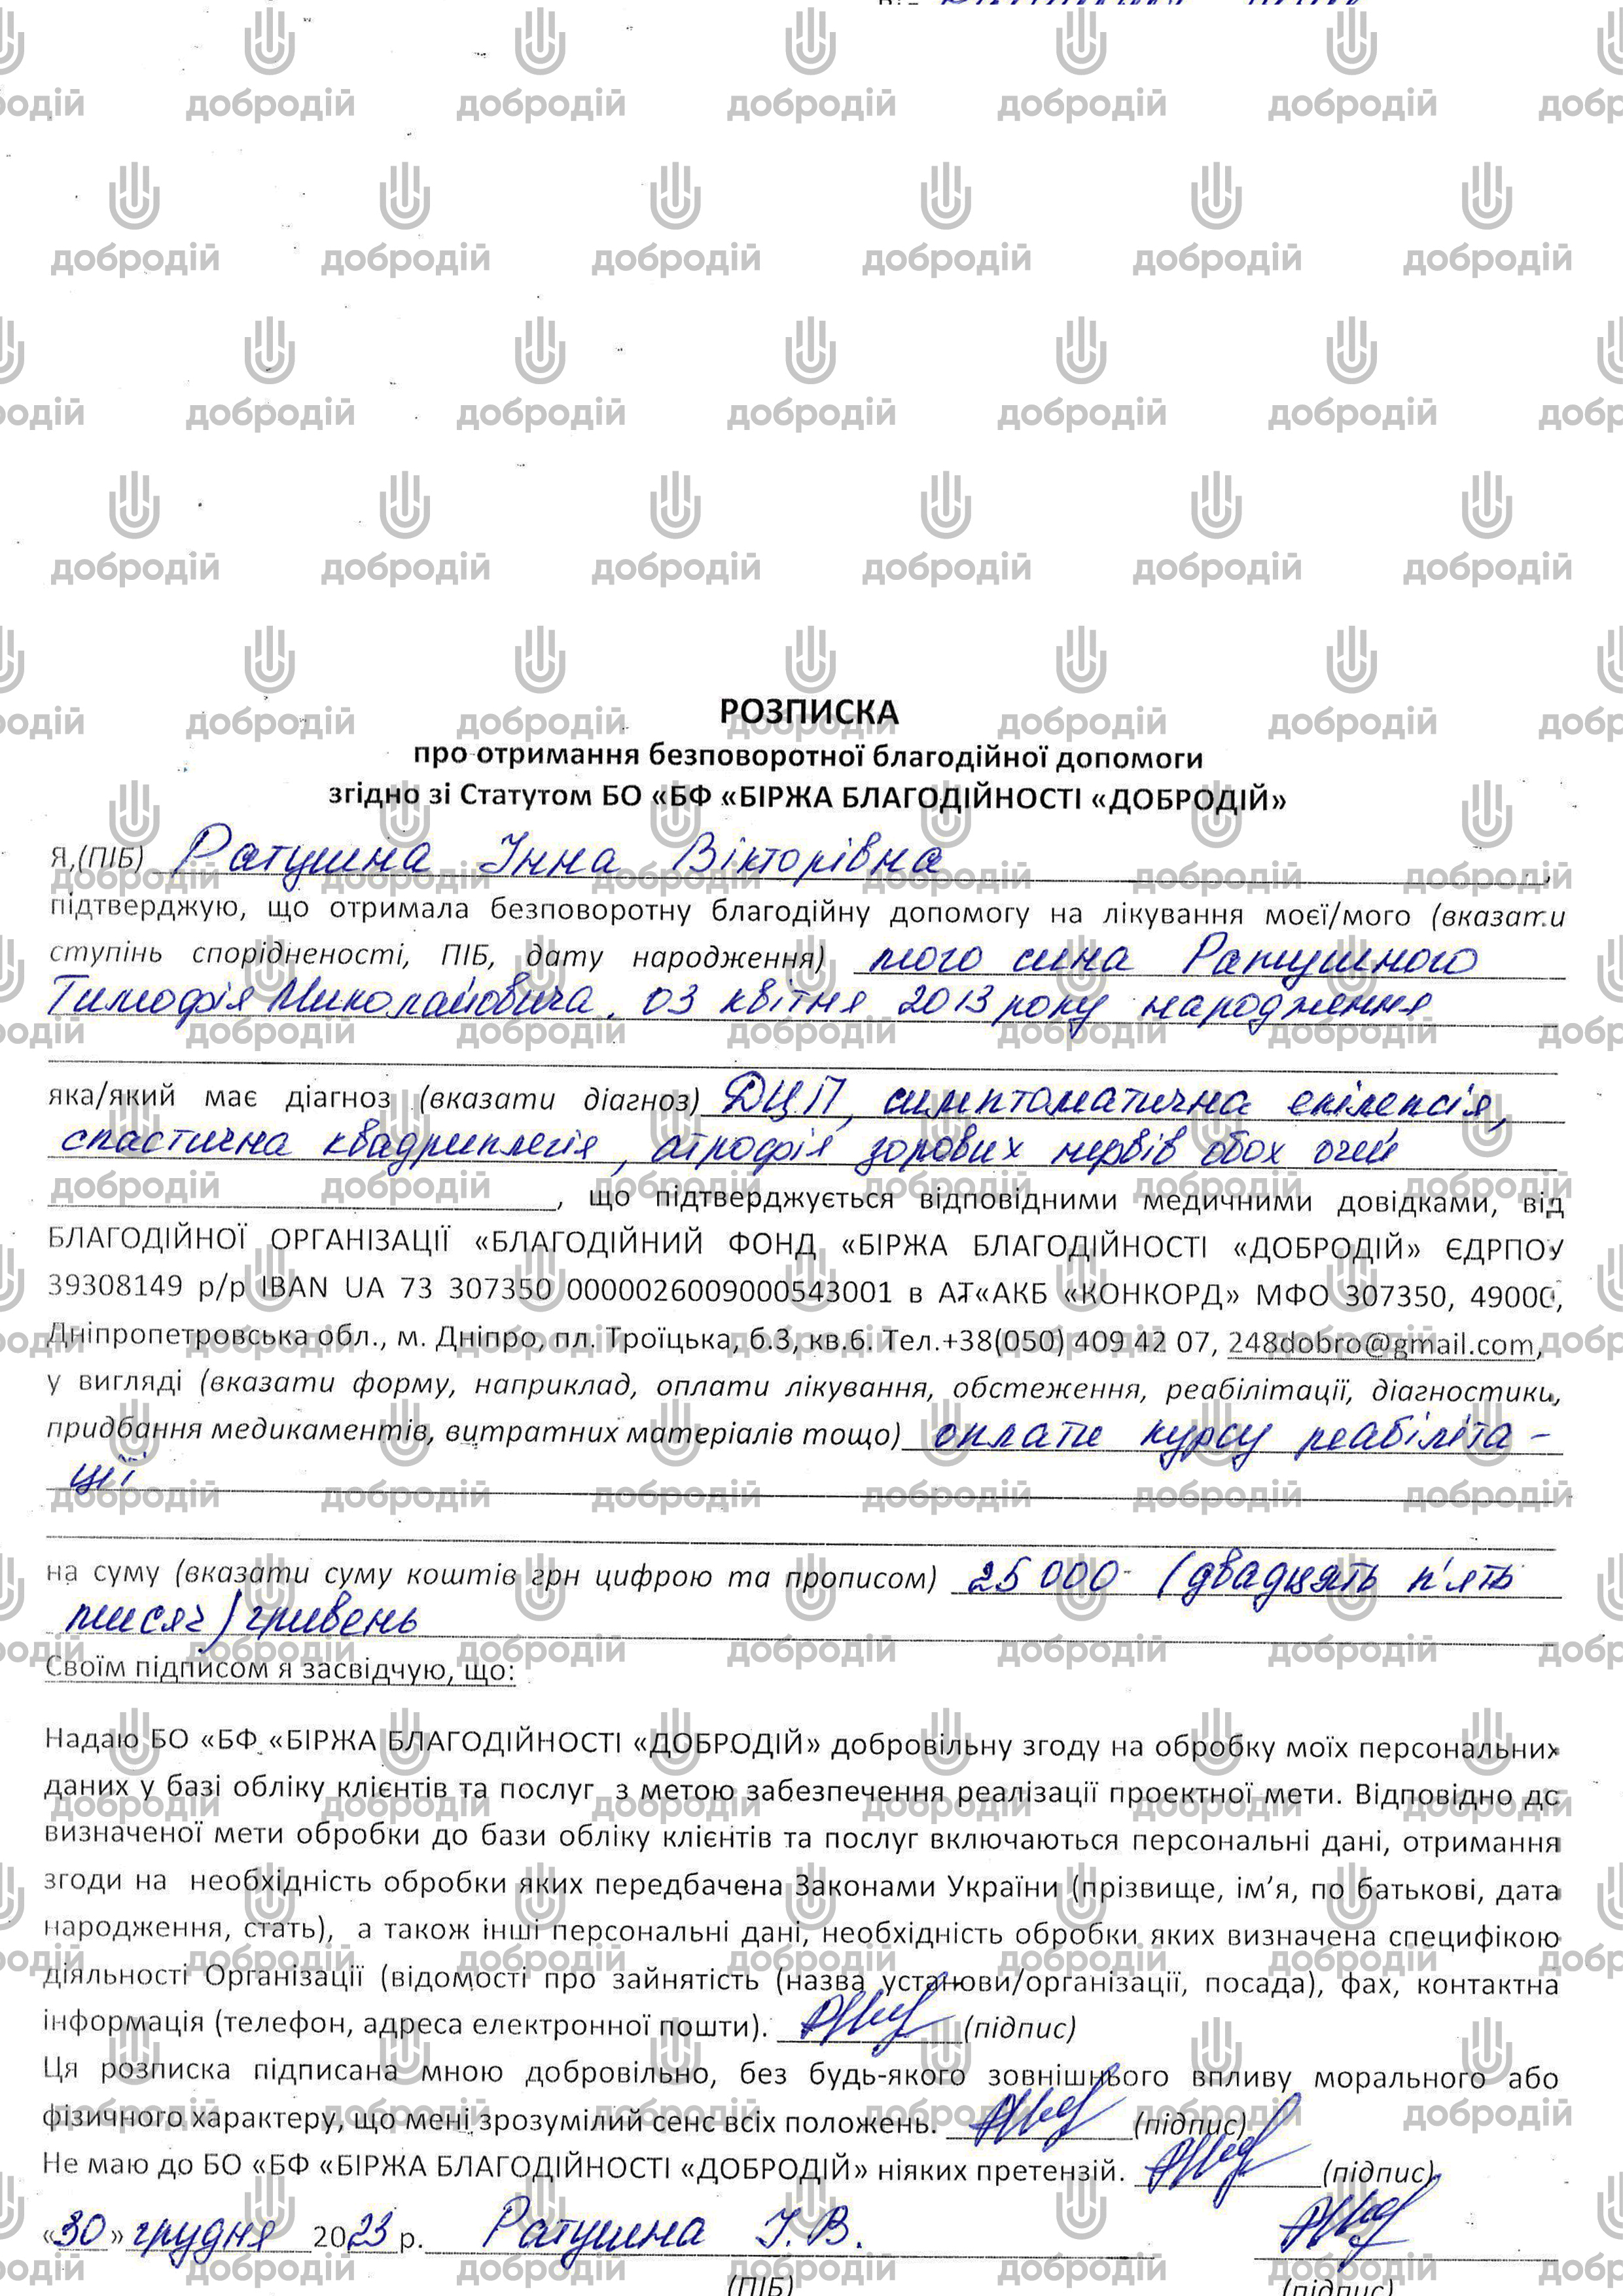 РОЗПИСКА
про отримання безповоротної благодійної допомоги
згідно зі Статутом БО «БФ «БІРЖА БЛАГОДІЙНОСТІ «ДОБРОДІЙ»
Я,(ПІБ) Ратушна Інна Вікторівна ,
підтверджую, що отримала безповоротну благодійну допомогу на лікування моєї/мого (вказати
ступінь спорідненості, ПІБ, дату народження) мого сина Ратушного
Тимофія Миколайовича, 03 квітня 2013 року народження
яка/який має діагноз (вказати діагноз) ДЦП, симптоматична епілепсія,
спастична квадриплегія, атрофія зорових нервів обох очей
, що підтверджується відповідними медичними довідками, від
БЛАГОДІЙНОЇ ОРГАНІЗАЦІЇ «БЛАГОДІЙНИЙ ФОНД «БІРЖА БЛАГОДІЙНОСТІ «ДОБРОДІЙ» ЄДРПОУ
39308149 р/р IBAN UA 73 307350 0000026009000543001 в АТ«АКБ «КОНКОРД» МФО 307350, 49000,
Дніпропетровська обл., м. Дніпро, пл. Троїцька, б.3, кв.6. Тел.+38(050) 409 42 07, 248dobro@gmail.com,
у вигляді (вказати форму, наприклад, оплати лікування, обстеження, реабілітації, діагностики,
придбання медикаментів, витратних матеріалів тощо) оплати курсу реабіліта-
ції
на суму (вказати суму коштів грн цифрою та прописом) 25 000 (двадцять п'ять
тисяч) гривень
Своїм підписом я засвідчую, що:
Надаю БО «БФ «БІРЖА БЛАГОДІЙНОСТІ «ДОБРОДІЙ» добровільну згоду на обробку моїх персональних
даних у базі обліку клієнтів та послуг з метою забезпечення реалізації проектної мети. Відповідно до
визначеної мети обробки до бази обліку клієнтів та послуг включаються персональні дані, отримання
згоди на необхідність обробки яких передбачена Законами України (прізвище, ім'я, по батькові, дата
народження, стать), а також інші персональні дані, необхідність обробки яких визначена специфікою
діяльності Організації (відомості про зайнятість (назва установи/організації, посада), фах, контактна
інформація (телефон, адреса електронної пошти). (підпис)
Ця розписка підписана мною добровільно, без будь-якого зовнішнього впливу морального або
фізичного характеру, що мені зрозумілий сенс всіх положень. (підпис)
Не маю до БО «БФ «БІРЖА БЛАГОДІЙНОСТІ «ДОБРОДІЙ» ніяких претензій. (підпис)
«30» грудня 2023 р. Ратушна І. В.
(ПІБ) (підпис)
добродій